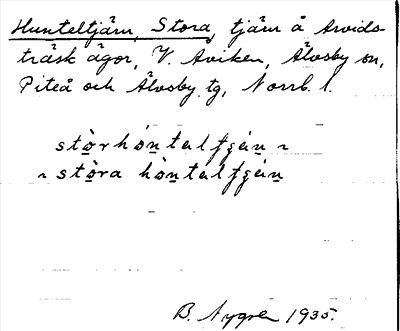 Hunteltjärn, Stora, tjärn å Arvids-
träsk ägor, V. Aviken, Älvsby sn,
Piteå och Älvsby tg, Norrb. l.
stòrhóntalfgán ~
~ stòra hòntalfgán
B. Nygren 1935.